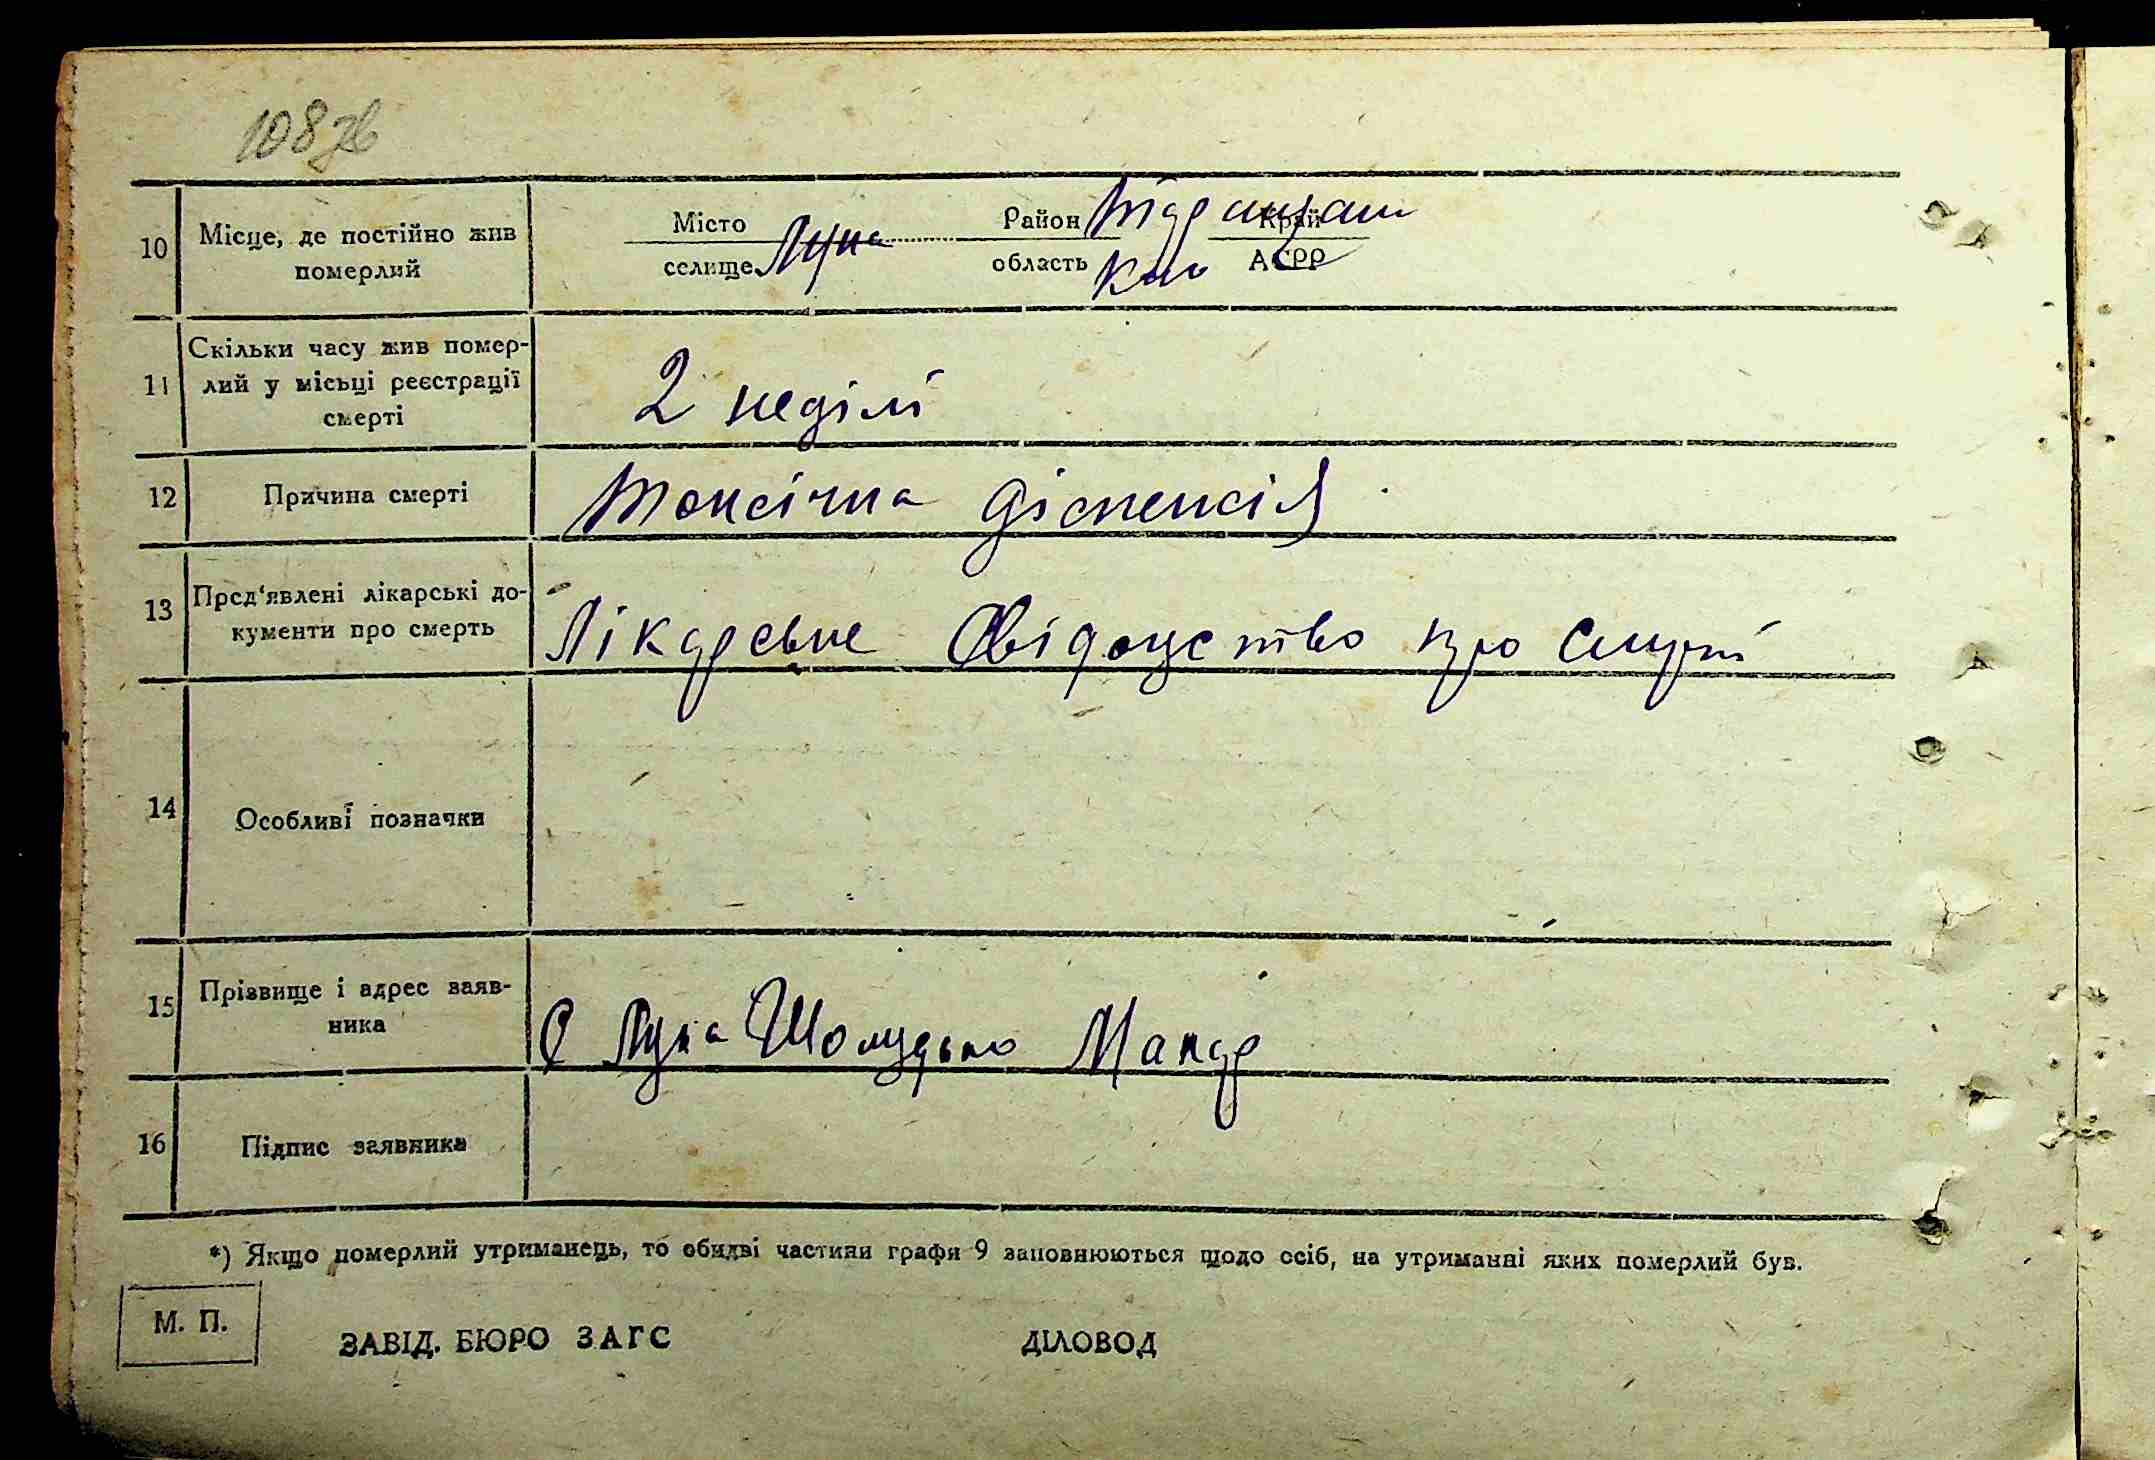 108зв
10 Місце, де постійно жив померлий Місто селище Лука Район область Кап Край АСРР
11 Скільки часу жив помер-
лий у місьці реєстрації
смерті
2 неділі
12 Причина смерті Токсічна діспепсія
13 Пред'явлені лікарські до-
кументи про смерть
Лікарське свідоцство про смерть
14 Особливі позначки
15 Прізвище і адрес заяв-
ника
С Лука Шолудько Макар
16 Підпис заявника
*) Якщо померлий утриманець, то обидві частини графи 9 заповнюються щодо осіб, на утриманні яких померлий був.
М. П.
ЗАВІД. БЮРО ЗАГС ДІЛОВОД